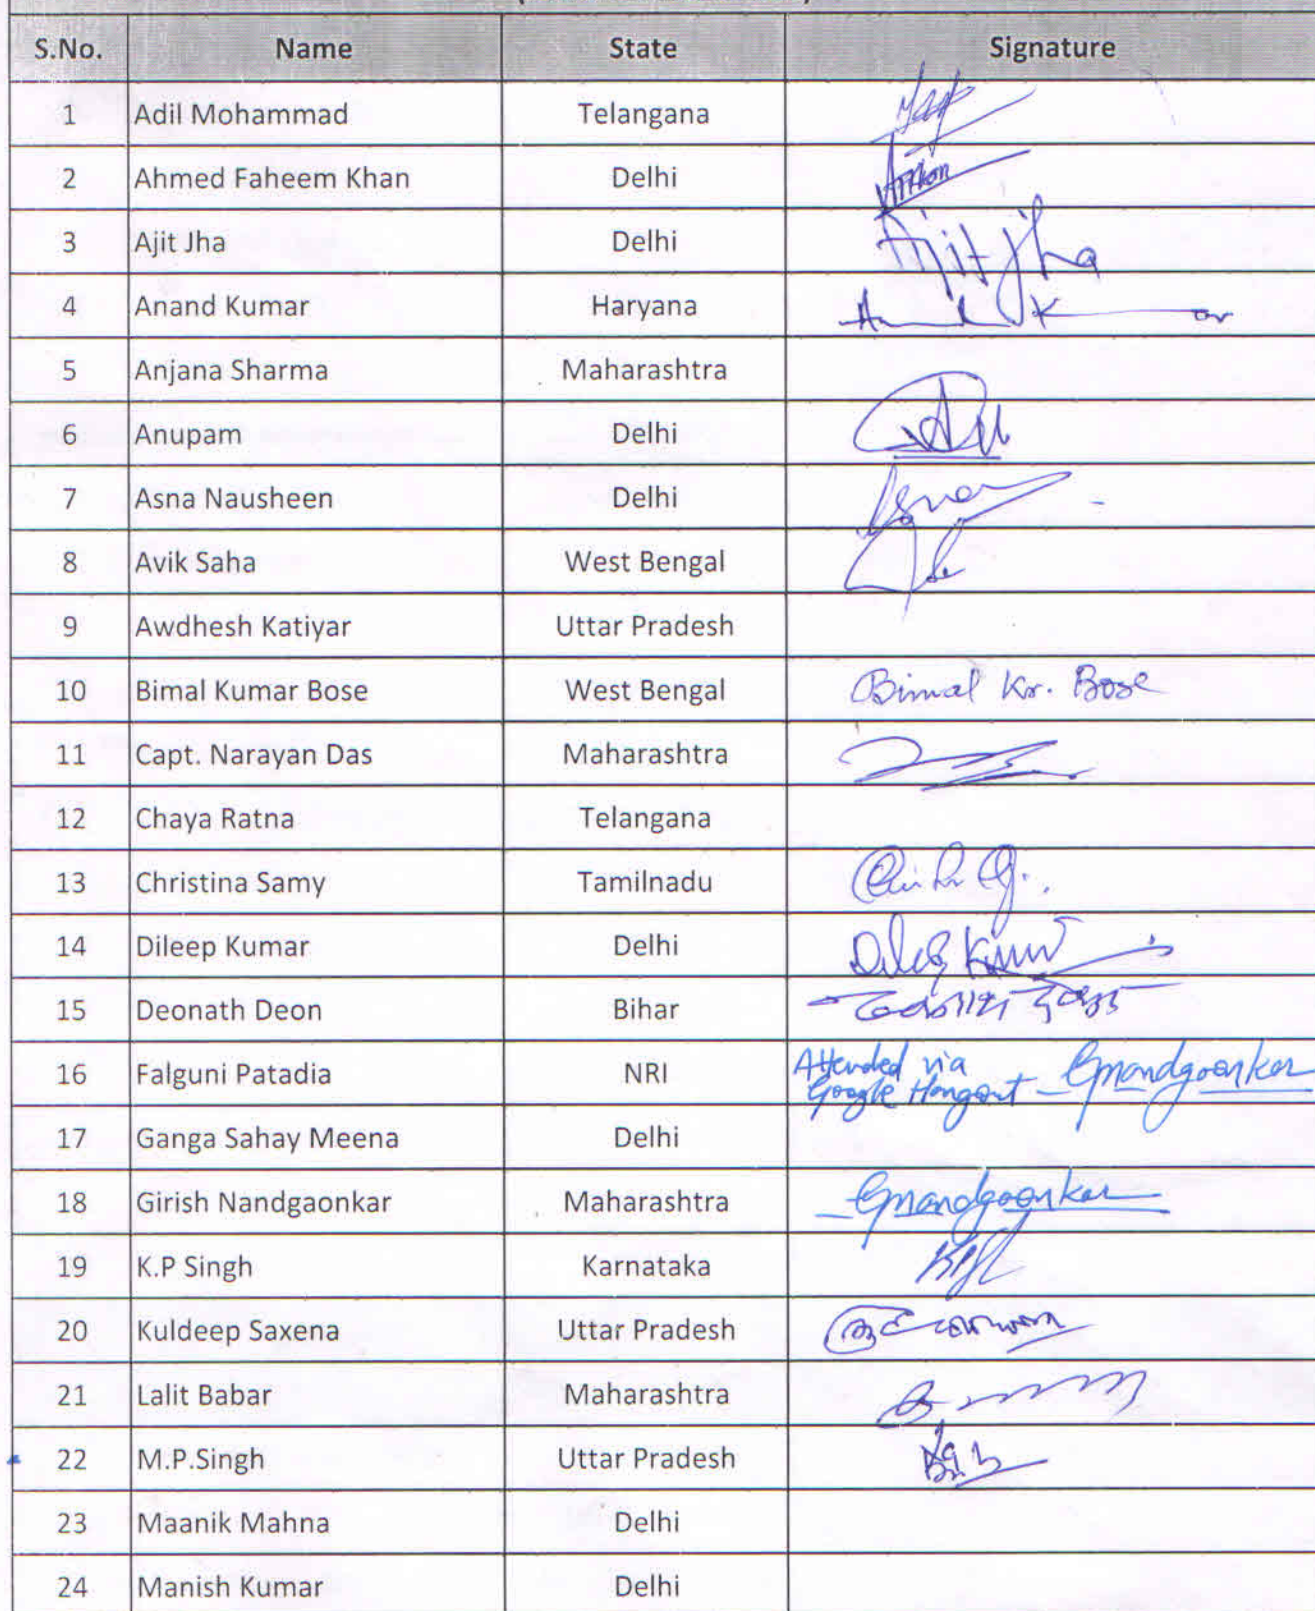 S.No. Name State Signature
1 Adil Mohammad Telangana
2 Ahmed Faheem Khan Delhi
3 Ajit Jha Delhi Ajit Jha
4 Anand Kumar Haryana
5 Anjana Sharma Maharashtra
6 Anupam Delhi
7 Asna Nausheen Delhi
8 Avik Saha West Bengal
9 Awdhesh Katiyar Uttar Pradesh
10 Bimal Kumar Bose West Bengal Bimal Kr. Bose
11 Capt. Narayan Das Maharashtra
12 Chaya Ratna Telangana
13 Christina Samy Tamilnadu
14 Dileep Kumar Delhi
15 Deonath Deon Bihar
16 Falguni Patadia NRI Attended via
Google Hangout - GNandgaonkar
17 Ganga Sahay Meena Delhi
18 Girish Nandgaonkar Maharashtra GNandgaonkar
19 K.P Singh Karnataka
20 Kuldeep Saxena Uttar Pradesh
21 Lalit Babar Maharashtra
22 M.P.Singh Uttar Pradesh
23 Maanik Mahna Delhi
24 Manish Kumar Delhi